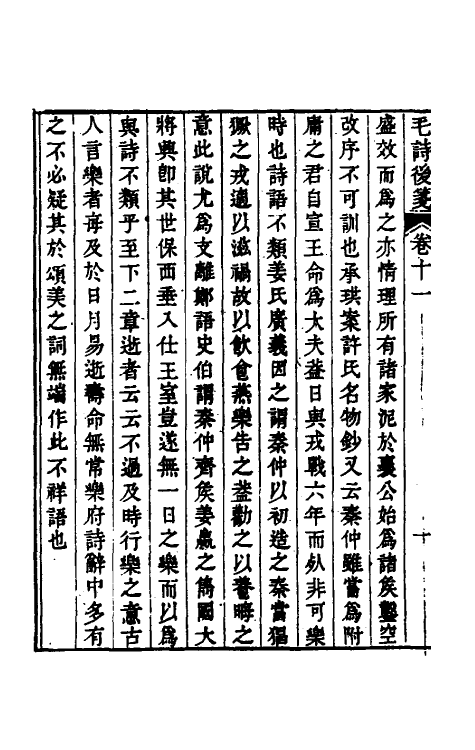 毛詩後箋 卷十一 十
盛效而爲之亦情理所有諸家泥於襄公始爲諸矦鑿空
改序不可訓也承珙案許氏名物鈔又云秦仲雖當爲附
庸之君自宣王命爲大夫葢日與戎戰六年而死非可樂
時也詩語不類姜氏廣義因之謂秦仲以初造之秦當獗
獗之戎適以滋禍故以飲食燕樂告之葢勸之以養晦之
意此說尤爲支離鄭語史伯謂秦仲齊矦姜嬴之雋國大
將興卽其世保西垂入仕王室豈遂無一日之樂而以爲
與詩不類乎至下二章逝者云云不過及時行樂之意古
人言樂者每及於日月易逝壽命無常樂府詩辭中多有
之不必疑其於頌美之詞無端作此不祥語也